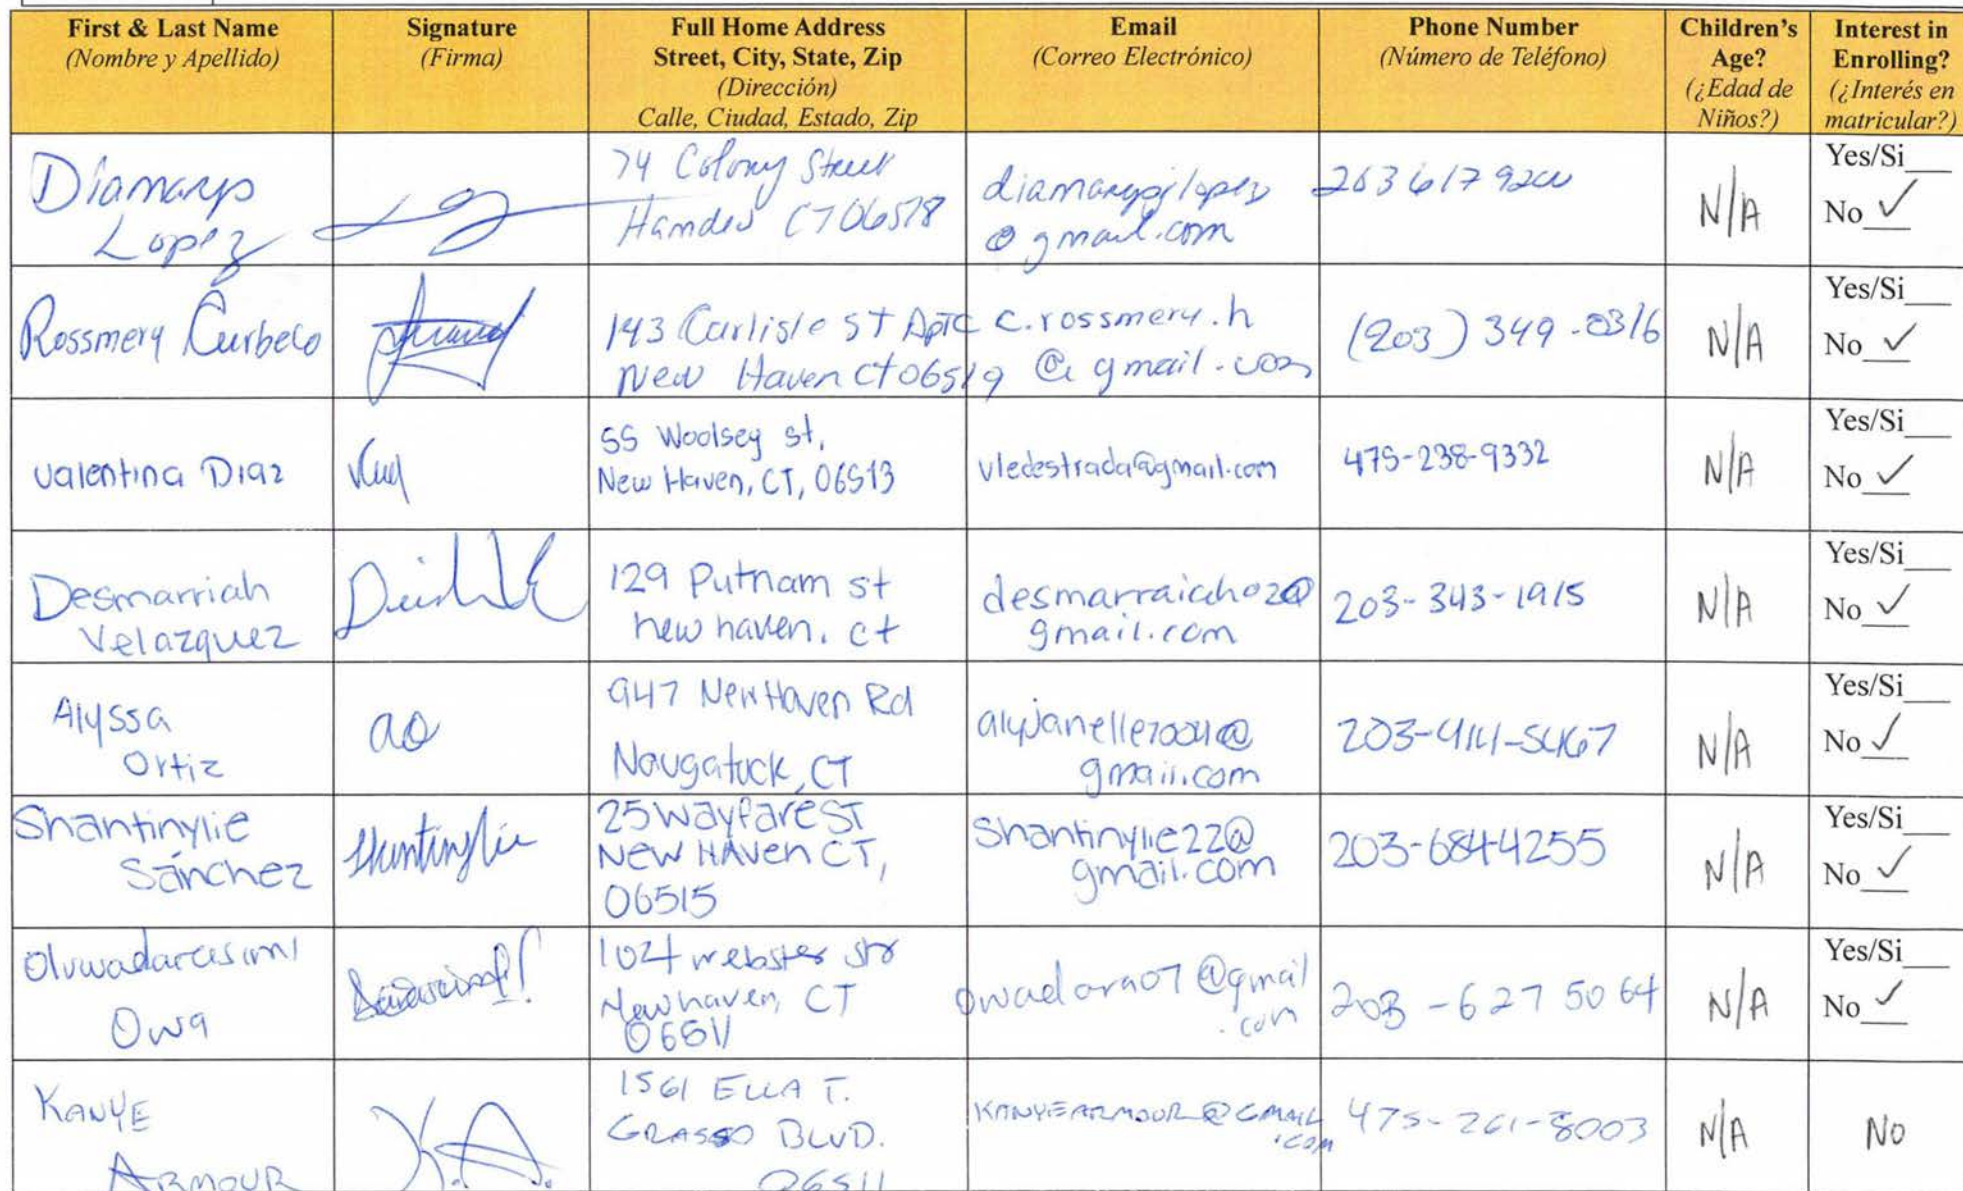 First & Last Name
(Nombre y Apellido)
Signature
(Firma)
Full Home Address
Street, City, State, Zip
(Dirección)
Calle, Ciudad, Estado, Zip
Email
(Correo Electrónico)
Phone Number
(Número de Teléfono)
Children's
Age?
(¿Edad de
Niños?)
Interest in
Enrolling?
(¿Interés en
matricular?)
Diamarys
Lopez
74 Colony Street
Hamden CT 06518
@gmail.com
N/A
Yes/Si
No ✓
Rossmery Curbelo
143 Carlisle ST Apt C
New Haven ct 06519
c.rossmery.h
@gmail.com
(203) 349-0316
N/A
Yes/Si
No ✓
Valentina Diaz
55 Woolsey st,
New Haven, CT, 06513
vledestrada@gmail.com
475-238-9332
N/A
Yes/Si
No ✓
Desmarriah
Velazquez
129 Putnam st
new haven, ct
gmail.com
203-343-1915
N/A
Yes/Si
No ✓
Alyssa
Ortiz
ao
947 New Haven Rd
Naugatuck, CT
gmail.com
N/A
Yes/Si
No ✓
Shantinylie
Sánchez
Shantinylie
25 Wayfare ST
New Haven CT,
06515
Shantinylie22@
gmail.com
203-684-4255
N/A
Yes/Si
No ✓
Oluwadarasimi
Owa
webster str
New haven, CT
06511
owadara07@gmail
.com
203-627 5064
N/A
Yes/Si
No ✓
KANYE
ARMOUR
K.A.
1561 ELLA T.
GRASSO BLVD.
06511
KANYEARMOUR@GMAIL
.COM
475-261-8003
N/A
No